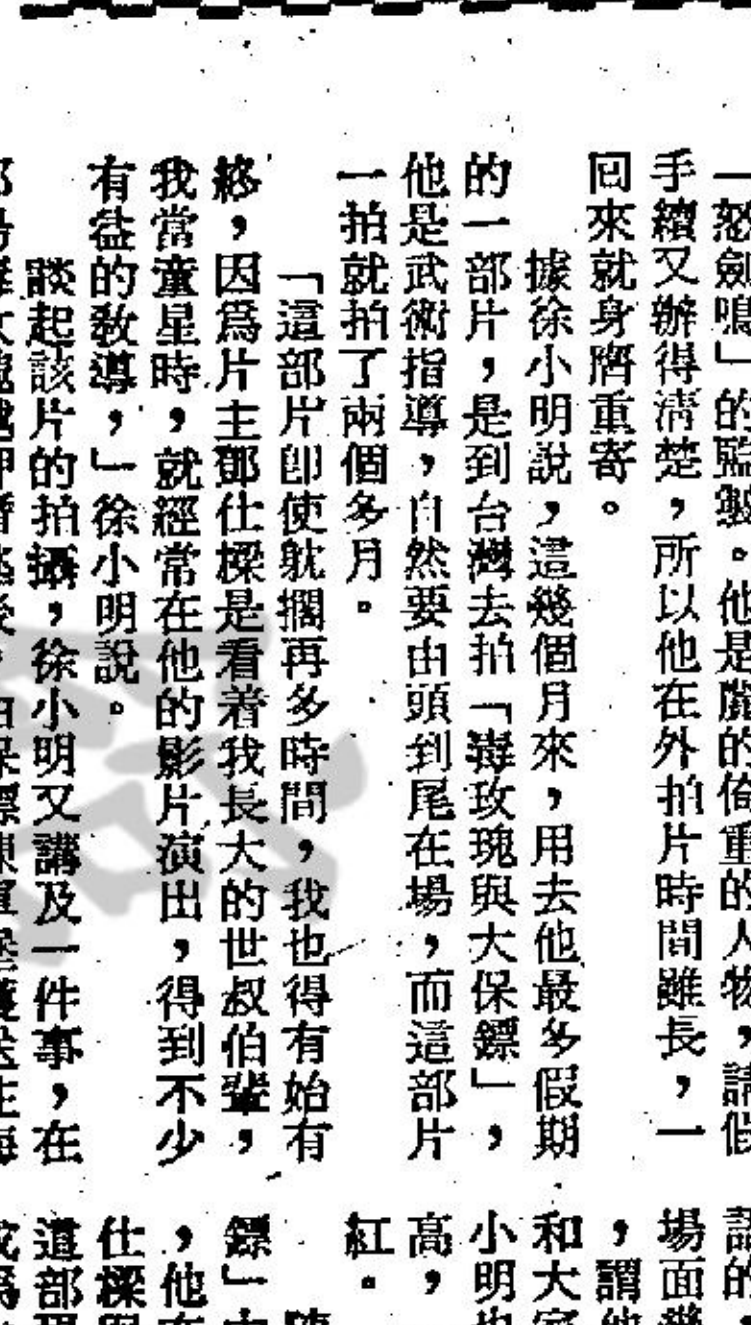 怒劍鳴」的監製。他是麗的倚重的人物，請假
手續又辦得清楚，所以他在外拍片時間雖長，一
回來就身隋重寄。
據徐小明說，這幾個月來，用去他最多假期
的一部片，是到台灣去拍「毒玫瑰與大保鏢」，
他是武術指導，自然要由頭到尾在場，而這部片
一拍就拍了兩個多月。
「這部片即使躭擱再多時間，我也得有始有
終，因爲片主鄧仕樑是看着我長大的世叔伯輩，
我當童星時，就經常在他的影片演出，得到不少
有益的敎導，」徐小明說。
談起該片的拍攝，徐小明又講及一件事，在
場面
，謂他
和大家
小明也
高，
紅。
鏢」
，他
仕樑
這部